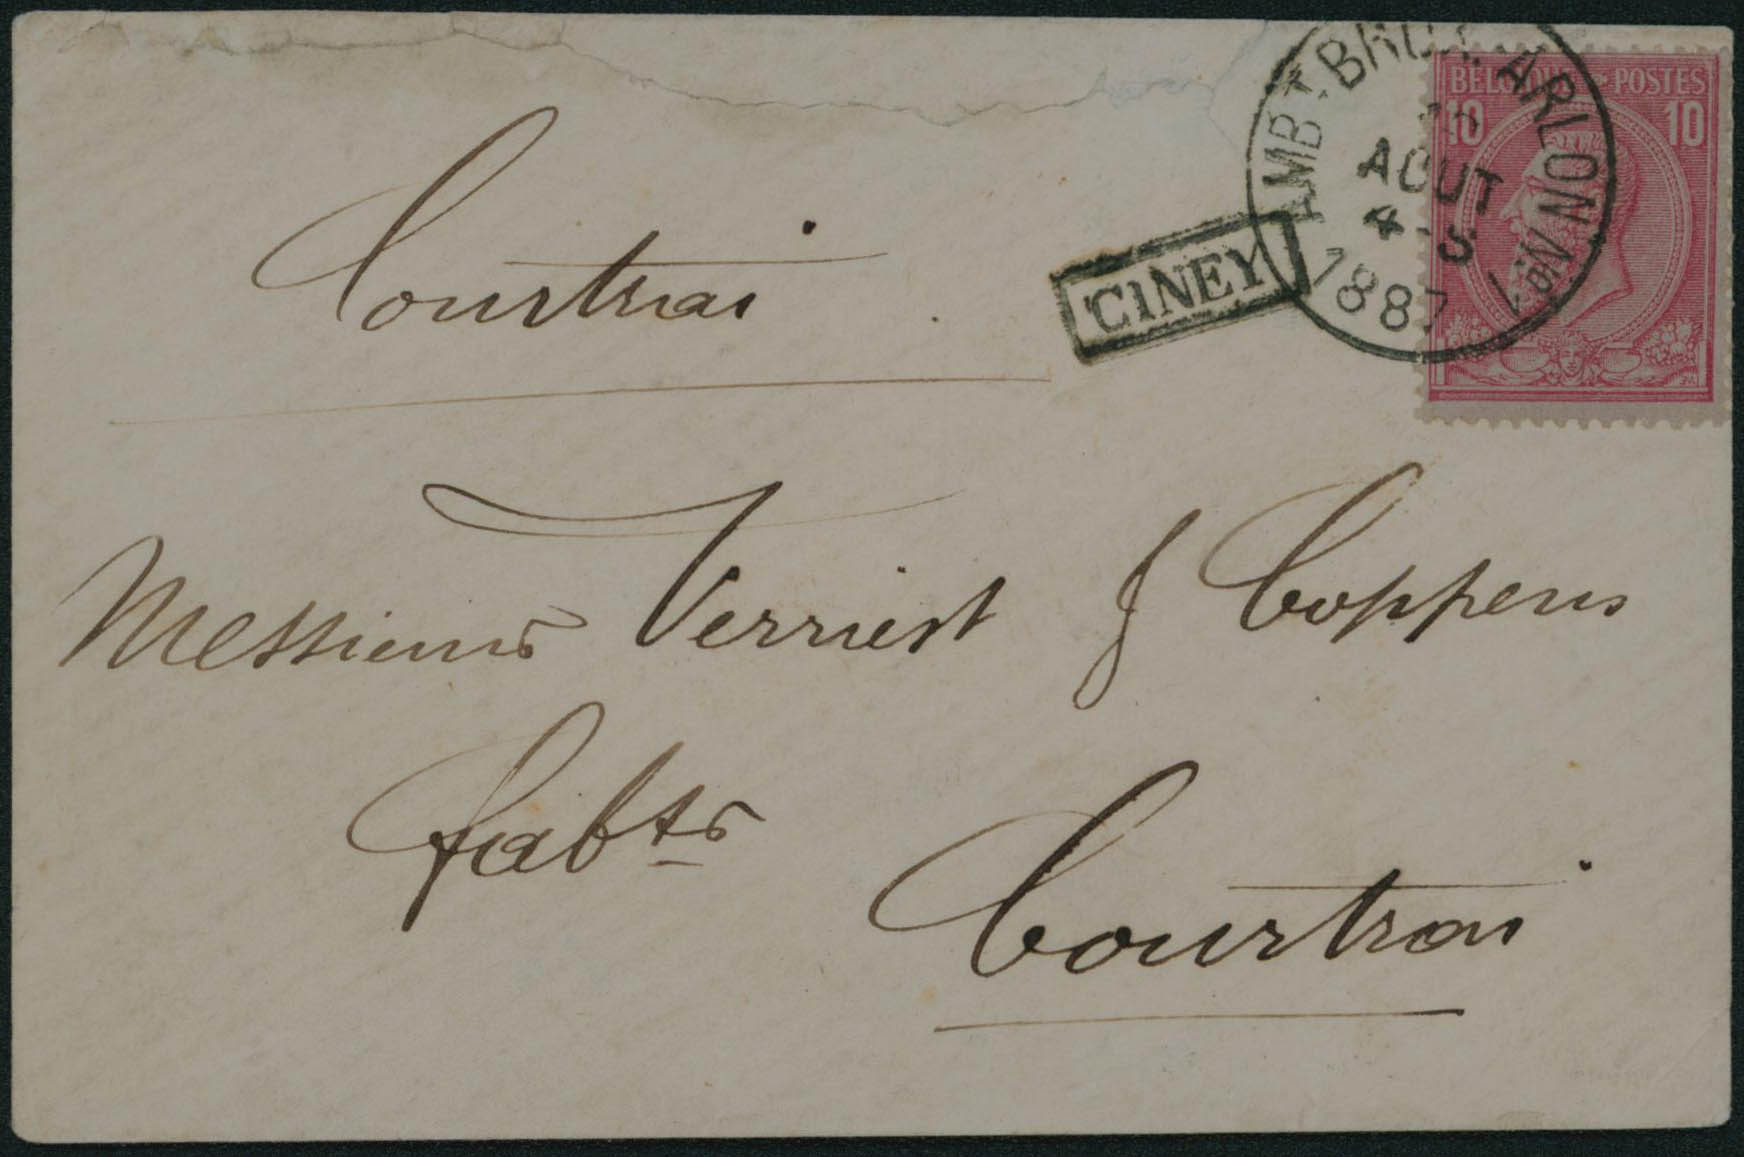 BELGIQUE POSTES
10 10
AMBT. BRUX. ARLON No 1
AOUT
4-S
1887
CINEY
Courtrai
Messieurs Verriest & Coppens
fabts
Courtrai